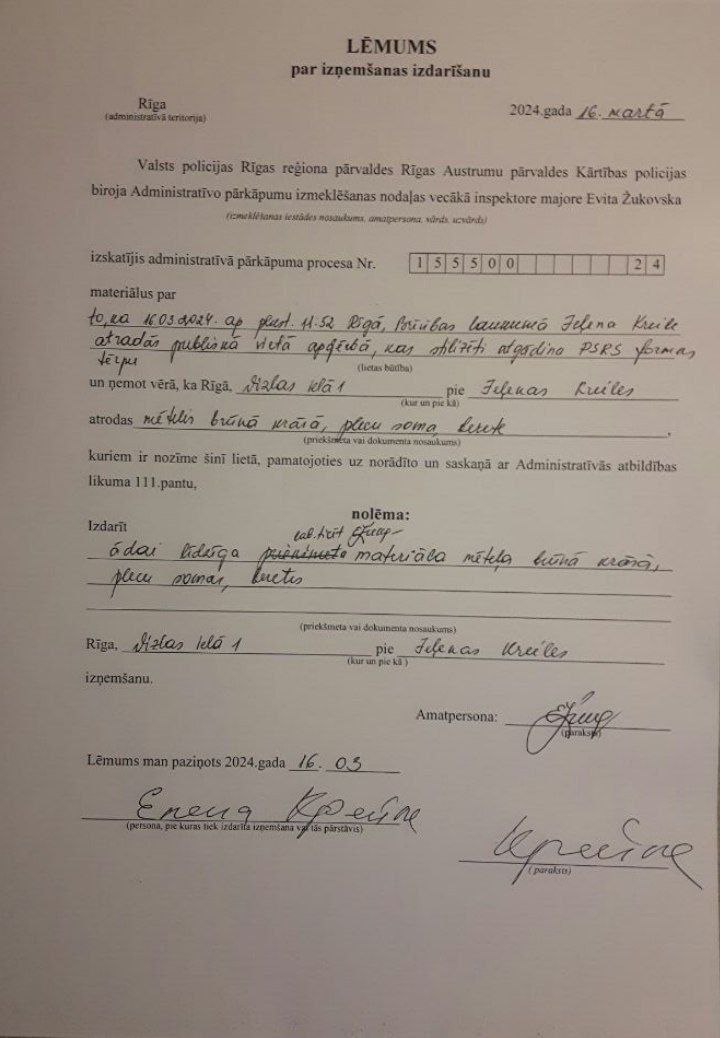 LĒMUMS
par izņemšanas izdarīšanu
Rīga
(administratīvā teritorija)
2024.gada 16. martā
Valsts policijas Rīgas reģiona pārvaldes Rīgas Austrumu pārvaldes Kārtības policijas
biroja Administratīvo pārkāpumu izmeklēšanas nodaļas vecākā inspektore majore Evita Žukovska
(izmeklēšanas iestādes nosaukums, amatpersona, vārds, uzvārds)
izskatījis administratīvā pārkāpuma procesa Nr. 1 5 5 5 0 0 2 4
materiālus par
to, ka 16.03.2024. ap plkst. 11.52 Rīgā, laukumā Jeļena Kreile
atradās publiskā vietā apģērbā, kas stilizēti atgādina PSRS formas
tērpu
(lietas būtība)
un ņemot vērā, ka Rīgā, ielā 1 pie Jeļenas Kreiles
(kur un pie kā)
atrodas mētelis brūnā krāsā, plecu soma, berete,
(priekšmeta vai dokumenta nosaukums)
kuriem ir nozīme šinī lietā, pamatojoties uz norādīto un saskaņā ar Administratīvās atbildības
likuma 111.pantu,
nolēma:
Izdarīt
ādai līdzīga materiāla mēteļa brūnā krāsā,
plecu somas, beretes
(priekšmeta vai dokumenta nosaukums)
Rīga, ielā 1 pie Jeļenas Kreiles
(kur un pie kā )
izņemšanu.
Amatpersona:
(paraksts)
Lēmums man paziņots 2024.gada 16. 03
Елена Крейле
(persona, pie kuras tiek izdarīta izņemšana vai tās pārstāvis)
Крейле
(paraksts)